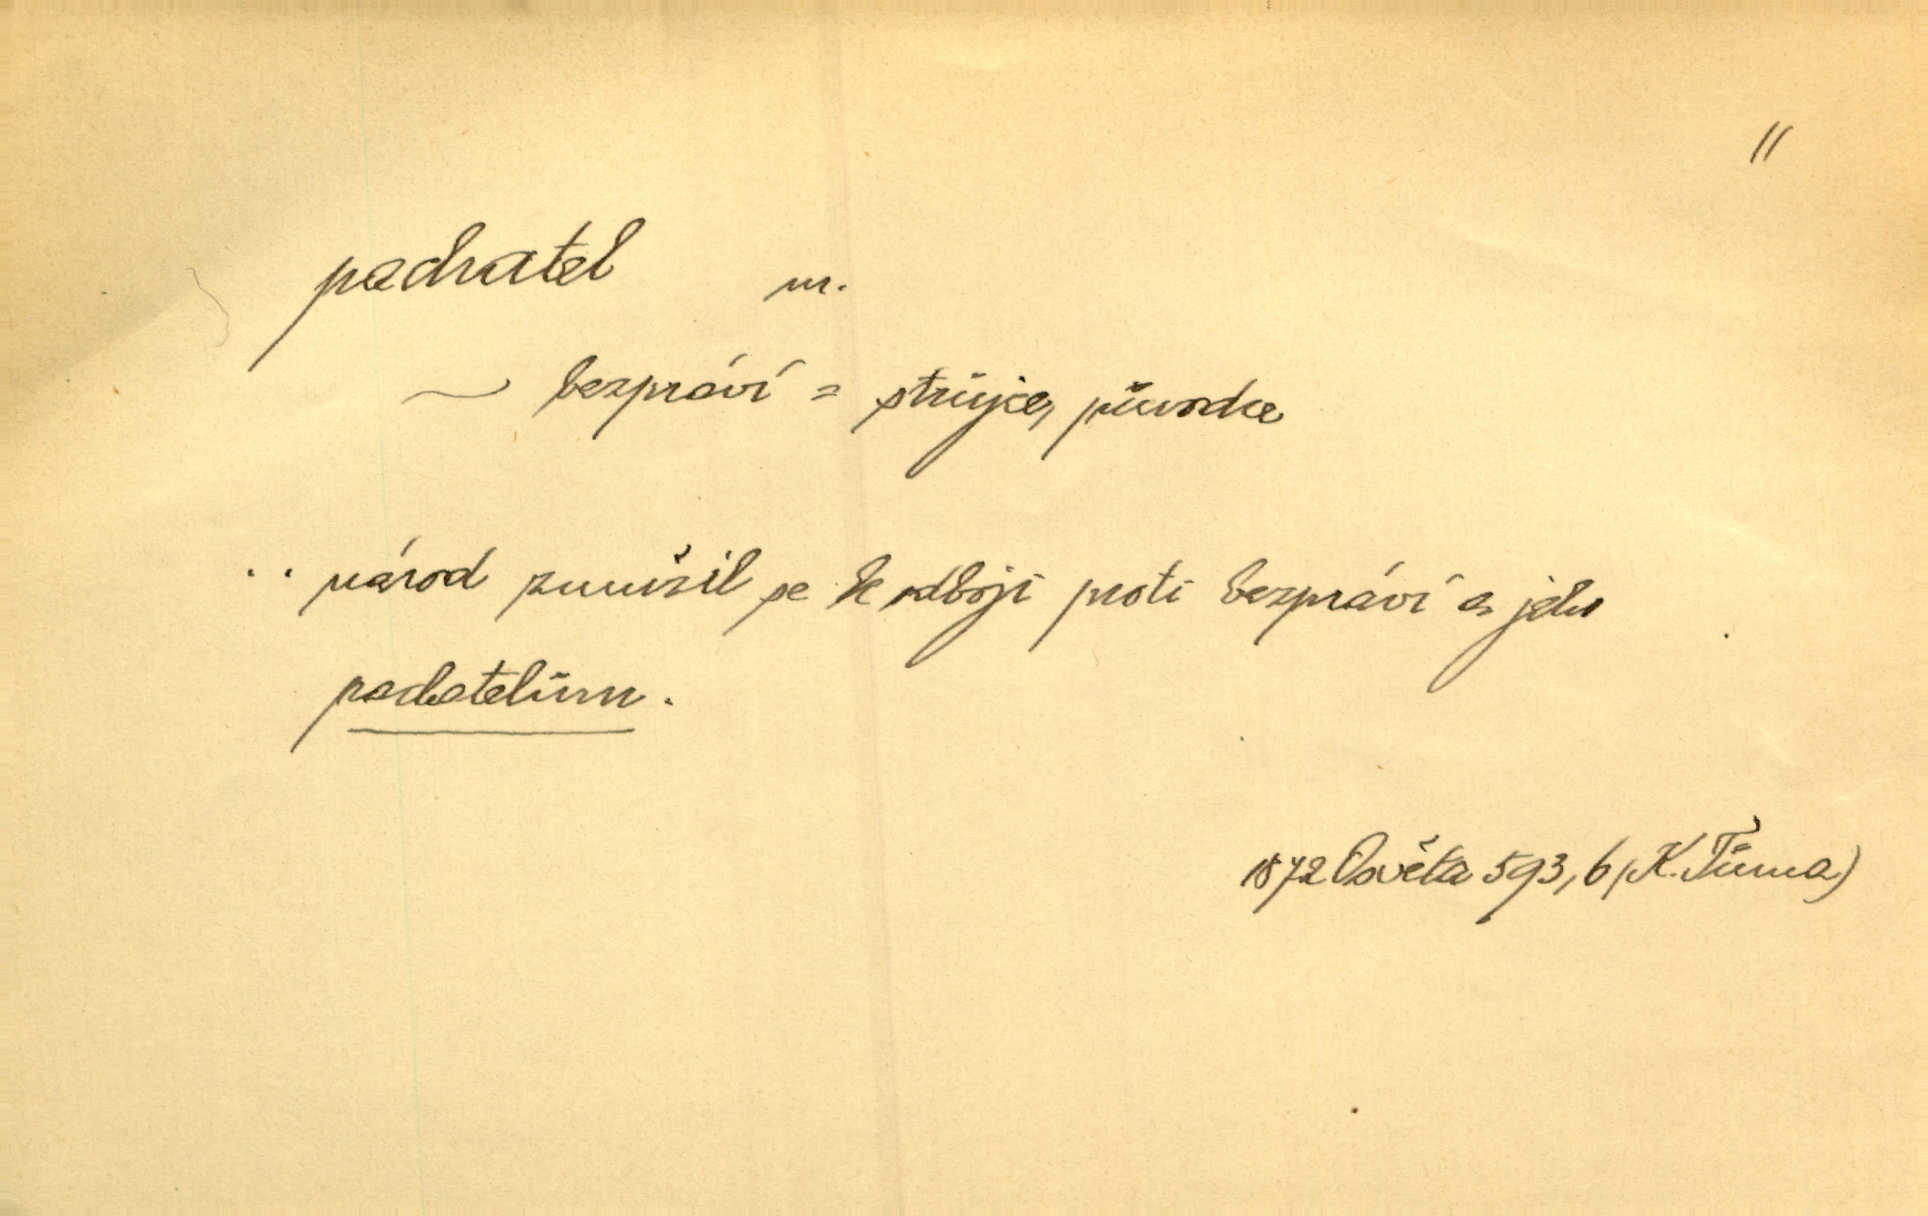 //
pachatel m.
~ bezpráví = strůjce, původce
.. národ zmužil se k odboji proti bezpráví a jeho
pachatelům.
1872 Osvěta 593, b (K. Tůma)